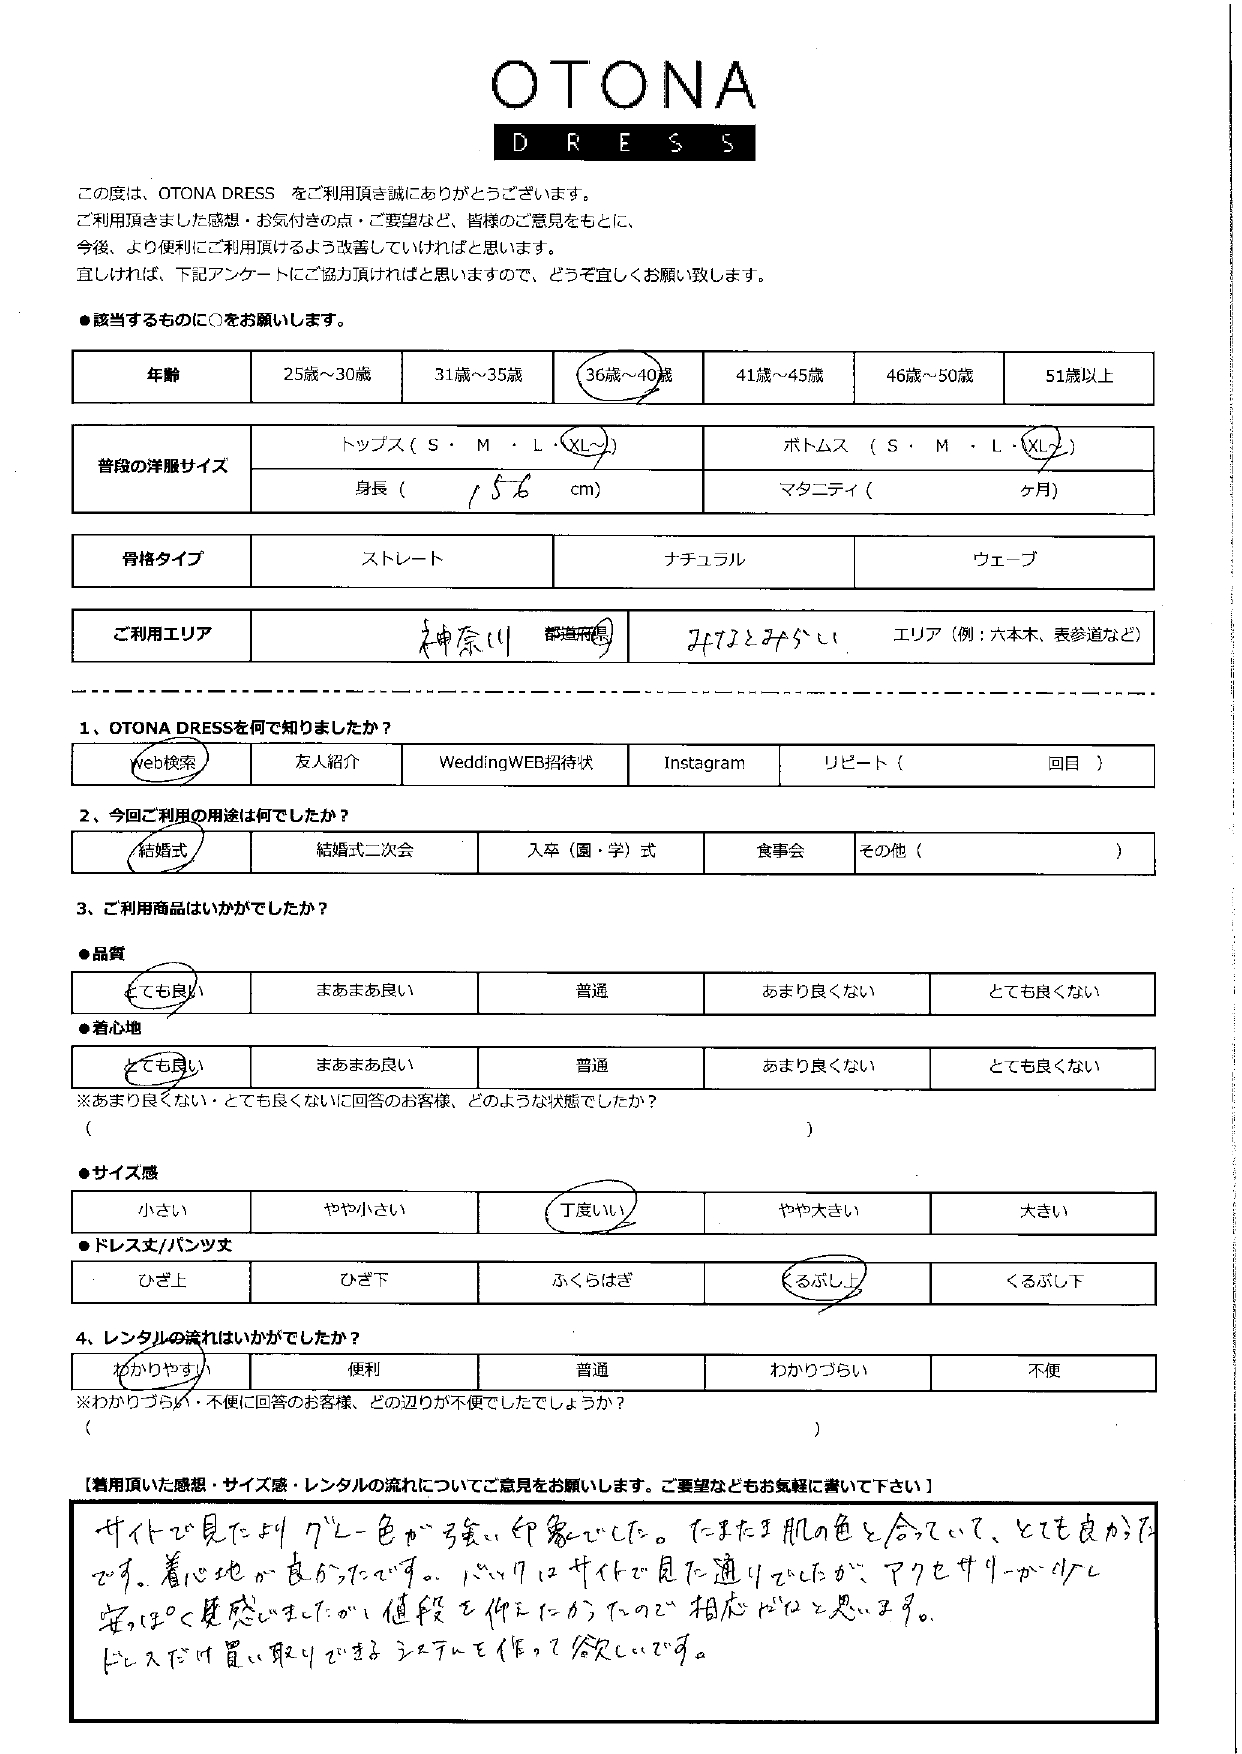 OTONA
DRESS
この度は、OTONA DRESS をご利用頂き誠にありがとうございます。
ご利用頂きました感想・お気付きの点・ご要望など、皆様のご意見をもとに、
今後、より便利にご利用頂けるよう改善していければと思います。
宜しければ、下記アンケートにご協力頂ければと思いますので、どうぞ宜しくお願い致します。
●該当するものに○をお願いします。
年齢 25歳～30歳 31歳～35歳 36歳～40歳 41歳～45歳 46歳～50歳 51歳以上
普段の洋服サイズ トップス ( S ・ M ・ L ・ XL～) ボトムス ( S ・ M ・ L ・ XL～)
身長 ( 156 cm) マタニティ ( ヶ月)
骨格タイプ ストレート ナチュラル ウェーブ
ご利用エリア 神奈川 都道府県 みなとみらい エリア（例：六本木、表参道など）
1、OTONA DRESSを何で知りましたか？
web検索 友人紹介 WeddingWEB招待状 Instagram リピート（ 回目 ）
2、今回ご利用の用途は何でしたか？
結婚式 結婚式二次会 入卒（園・学）式 食事会 その他（ ）
3、ご利用商品はいかがでしたか？
●品質
とても良い まあまあ良い 普通 あまり良くない とても良くない
●着心地
とても良い まあまあ良い 普通 あまり良くない とても良くない
※あまり良くない・とても良くないに回答のお客様、どのような状態でしたか？
( )
●サイズ感
小さい やや小さい 丁度いい やや大きい 大きい
●ドレス丈/パンツ丈
ひざ上 ひざ下 ふくらはぎ くるぶし上 くるぶし下
4、レンタルの流れはいかがでしたか？
わかりやすい 便利 普通 わかりづらい 不便
※わかりづらい・不便に回答のお客様、どの辺りが不便でしたでしょうか？
( )
【着用頂いた感想・サイズ感・レンタルの流れについてご意見をお願いします。ご要望などもお気軽に書いて下さい】
サイトで見たよりグレー色が強い印象でした。たまたま肌の色と合っていて、とても良かった
です。着心地が良かったです。バックはサイトで見た通りでしたが、アクセサリーが少し
安っぽく見感じましたが、値段を抑えたかったので相応だなと思います。
ドレスだけ買い取りできるシステムを作って欲しいです。